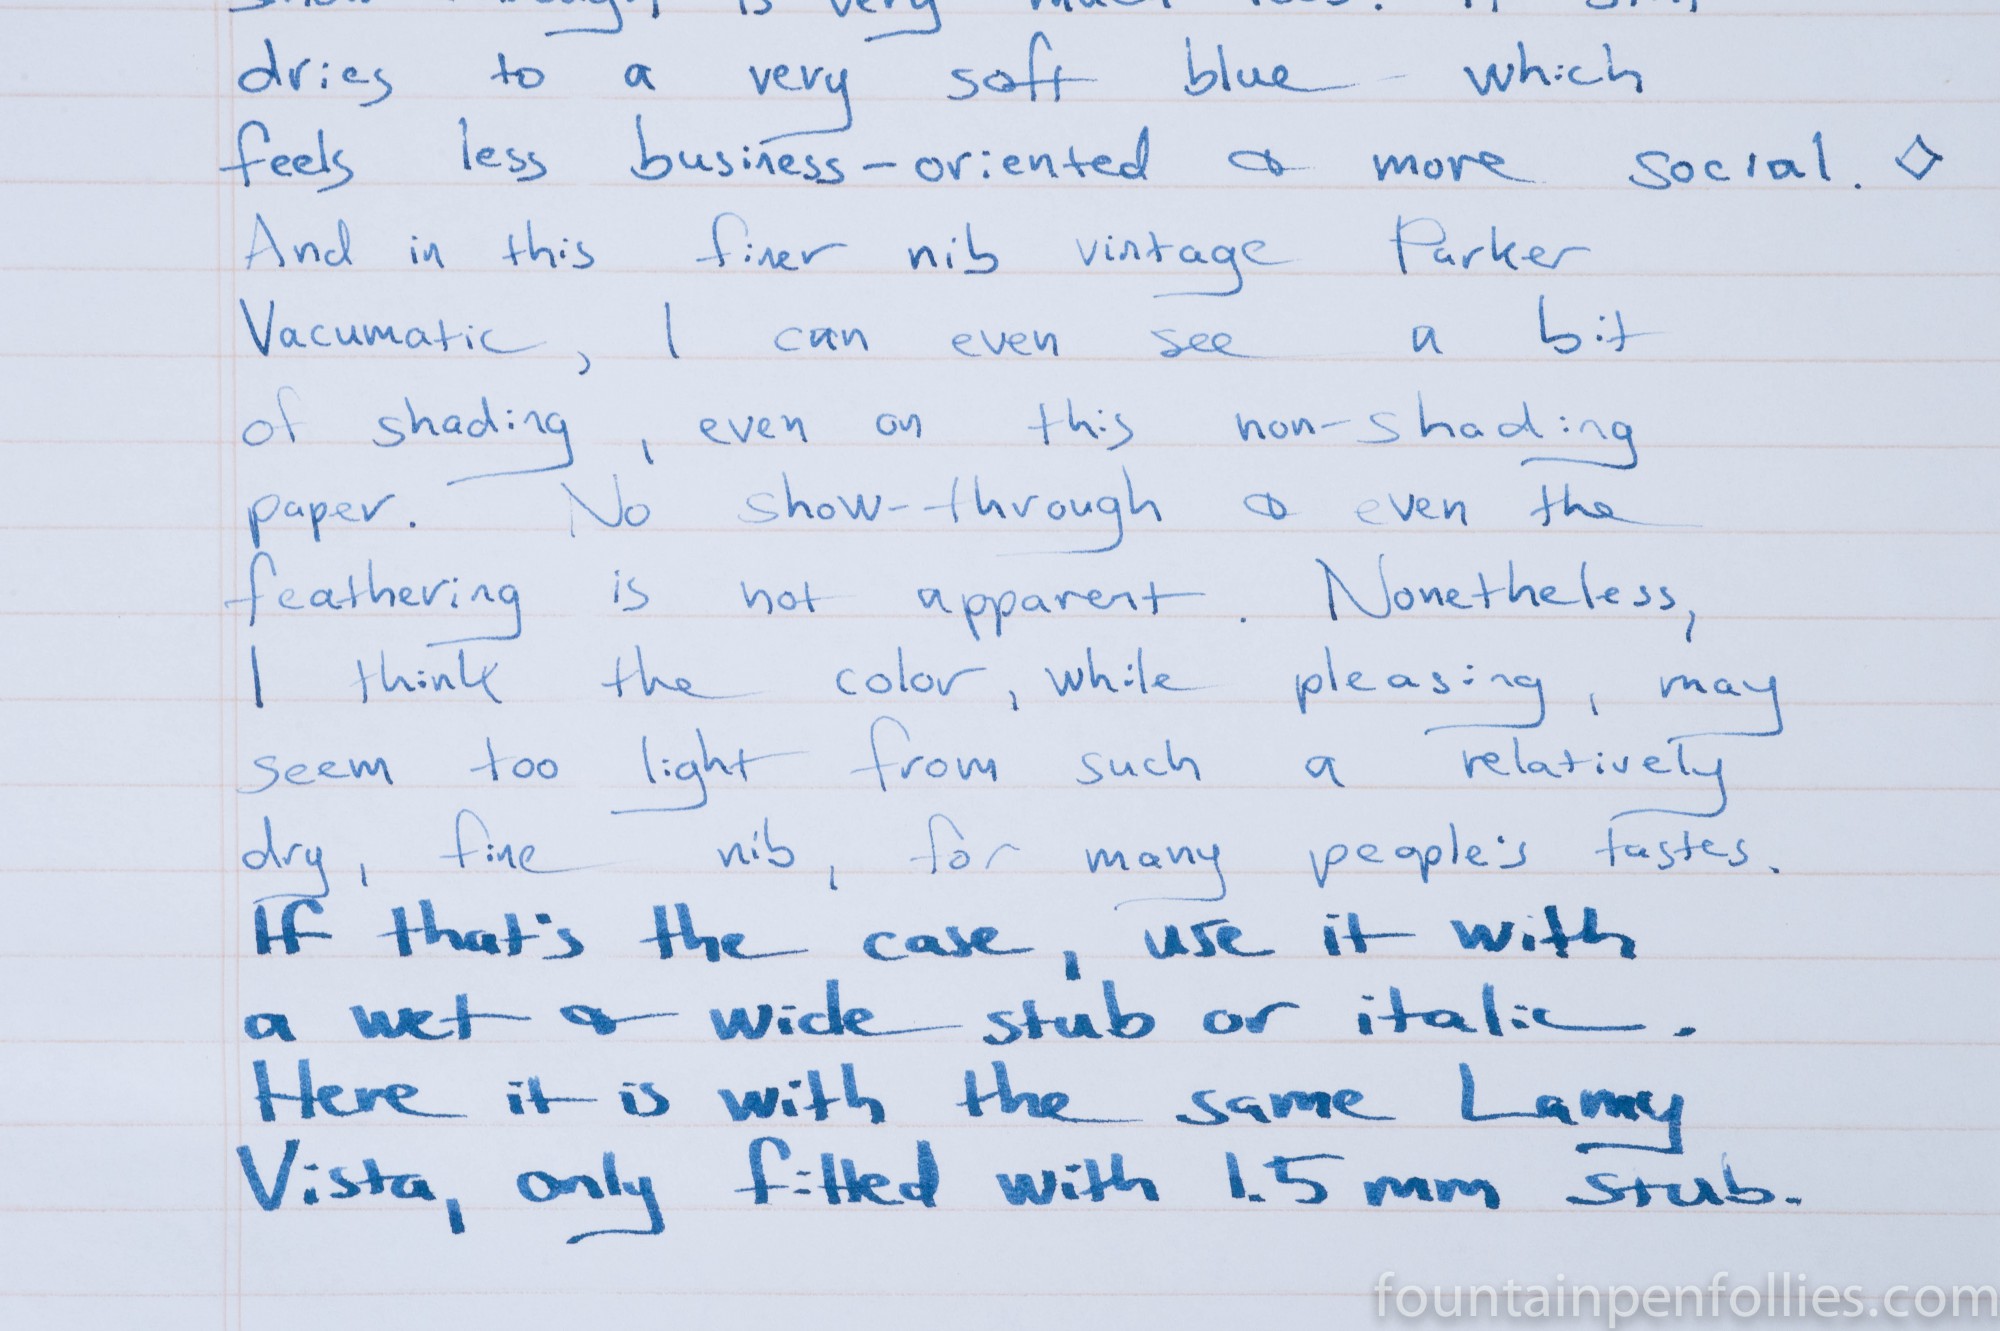 is very much less. It
dries to a very soft blue which
feels less business-oriented & more social. ◇
And in this finer nib vintage Parker
Vacumatic, I can even see a bit
of shading, even on this non-shading
paper. No show-through & even the
feathering is not apparent. Nonetheless,
I think the color, while pleasing, may
seem too light from such a relatively
dry, fine nib, for many people's tastes.
If that's the case, use it with
a wet & wide stub or italic.
Here it is with the same Lamy
Vista, only fitted with 1.5 mm stub.
fountainpenfollies.com